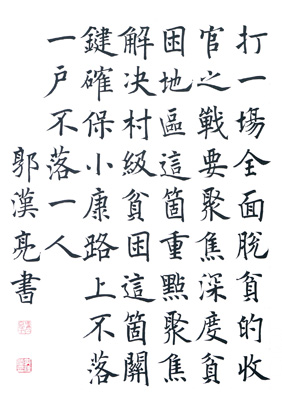 打一場全面脫貧的收
官之戰要聚焦深度貧
困地區這箇重點聚焦
解决村級貧困這箇關
鍵確保小康路上不落
一户不落一人
郭漢亮書